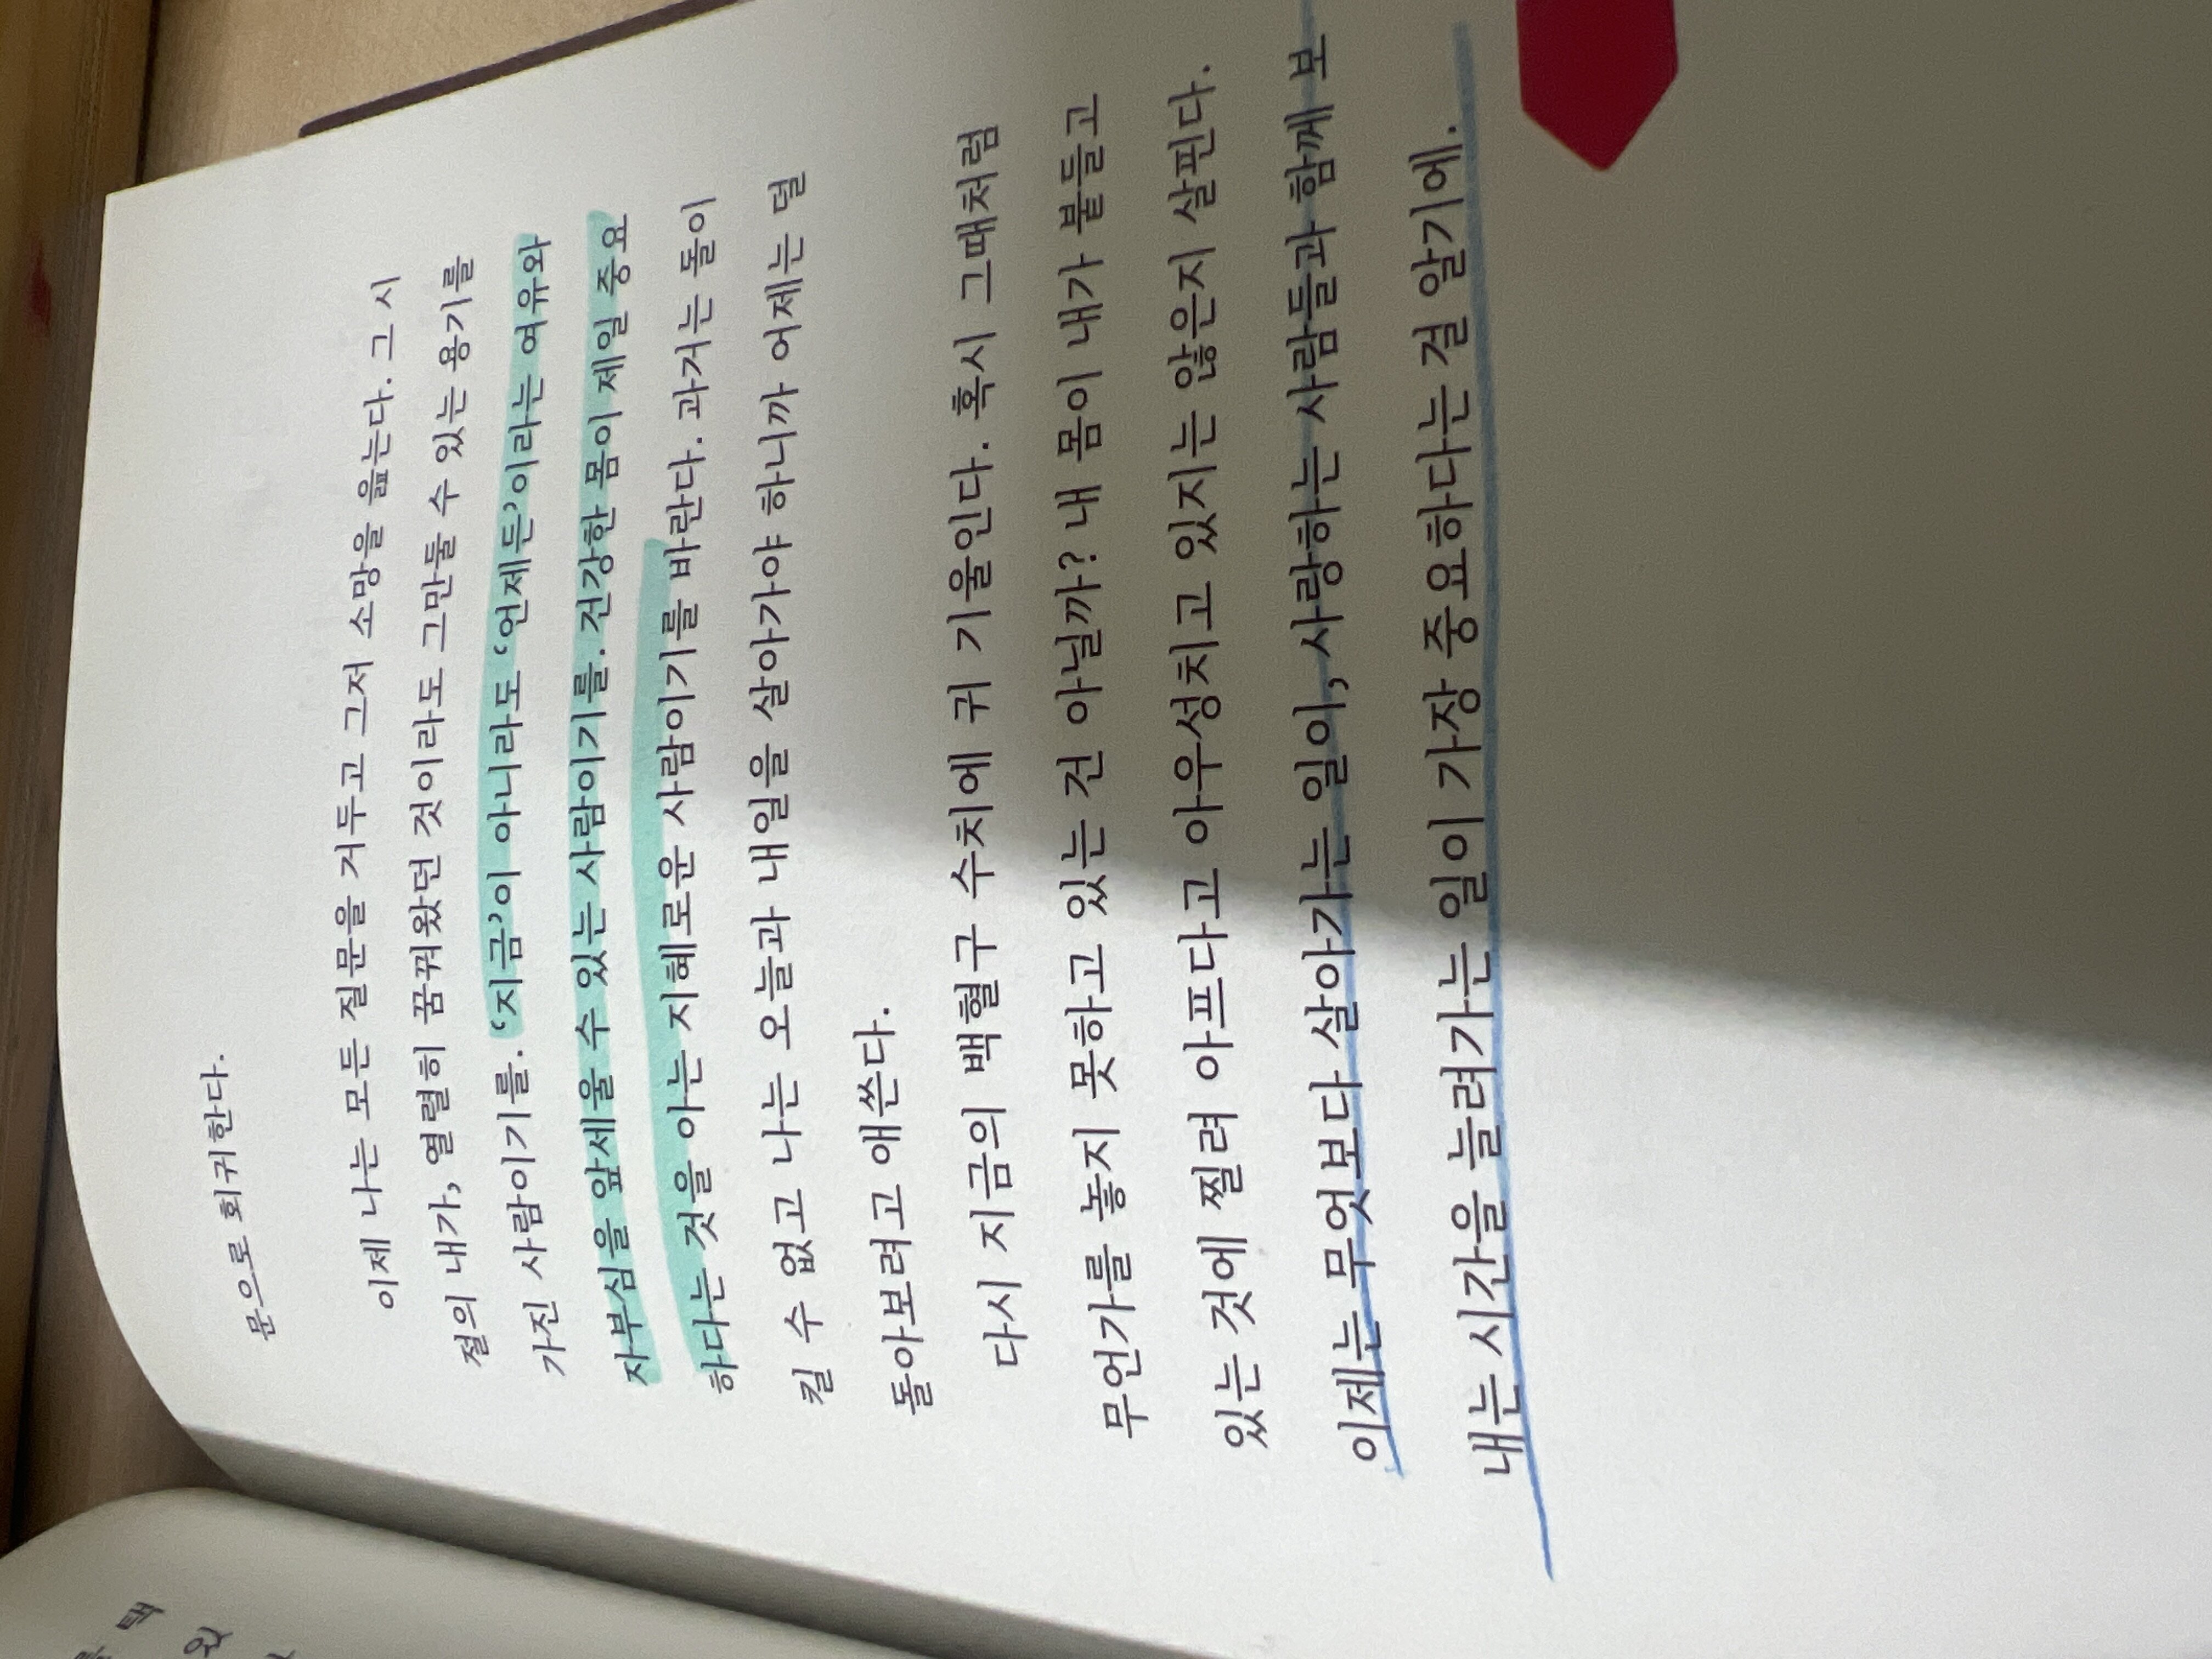 문으로 회귀한다.
이제 나는 모든 질문을 거두고 그저 소망을 읊는다. 그 시
절의 내가, 열렬히 꿈꿔왔던 것이라도 그만둘 수 있는 용기를
가진 사람이기를. ‘지금’이 아니라도 ‘언제든’이라는 여유와
자부심을 앞세울 수 있는 사람이기를. 건강한 몸이 제일 중요
하다는 것을 아는 지혜로운 사람이기를 바란다. 과거는 돌이
킬 수 없고 나는 오늘과 내일을 살아가야 하니까 어제는 덜
돌아보려고 애쓴다.
다시 지금의 백혈구 수치에 귀 기울인다. 혹시 그때처럼
무언가를 놓지 못하고 있는 건 아닐까? 내 몸이 내가 붙들고
있는 것에 찔려 아프다고 아우성치고 있지는 않은지 살핀다.
이제는 무엇보다 살아가는 일이, 사랑하는 사람들과 함께 보
내는 시간을 늘려가는 일이 가장 중요하다는 걸 알기에.